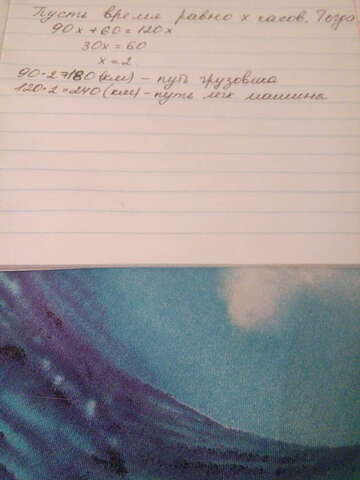 Пусть время равно x часов. Тогда
90x + 60 = 120x
30x = 60
x = 2
90·2=180(км) – путь грузовика
120·2=240(км) – путь легк машина